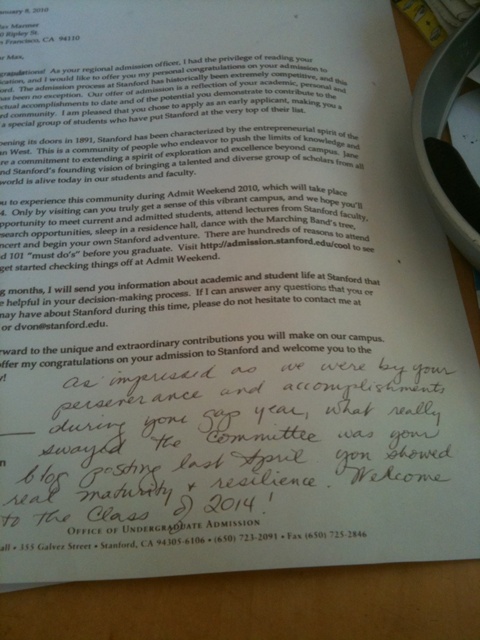 anuary 8, 2010
Ripley St.
Francisco, CA 94110
Max,
gratulations! As your regional admission officer, I had the privilege of reading your
ication, and I would like to offer you my personal congratulations on your admission to
ford. The admission process at Stanford has historically been extremely competitive, and this
has been no exception. Our offer of admission is a reflection of your academic, personal and
ectual accomplishments to date and of the potential you demonstrate to contribute to the
rd community. I am pleased that you chose to apply as an early applicant, making you a
a special group of students who have put Stanford at the very top of their list.
pening its doors in 1891, Stanford has been characterized by the entrepreneurial spirit of the
an West. This is a community of people who endeavor to push the limits of knowledge and
re a commitment to extending a spirit of exploration and excellence beyond campus. Jane
nd Stanford's founding vision of bringing a talented and diverse group of scholars from all
world is alive today in our students and faculty.
ou to experience this community during Admit Weekend 2010, which will take place
4. Only by visiting can you truly get a sense of this vibrant campus, and we hope you'll
pportunity to meet current and admitted students, attend lectures from Stanford faculty,
search opportunities, sleep in a residence hall, dance with the Marching Band's tree,
ncert and begin your own Stanford adventure. There are hundreds of reasons to attend
d 101 "must do's" before you graduate. Visit http://admission.stanford.edu/cool to see
get started checking things off at Admit Weekend.
g months, I will send you information about academic and student life at Stanford that
e helpful in your decision-making process. If I can answer any questions that you or
may have about Stanford during this time, please do not hesitate to contact me at
or dvon@stanford.edu.
rward to the unique and extraordinary contributions you will make on our campus.
offer my congratulations on your admission to Stanford and welcome you to the
y!
As impressed as we were by your
perserverance and accomplishments
during your gap year, what really
swayed the Committee was your
blog posting last April you showed
real maturity & resilience. Welcome
to the Class of 2014!
OFFICE OF UNDERGRADUATE ADMISSION
all • 355 Galvez Street • Stanford, CA 94305-6106 • (650) 723-2091 • Fax (650) 725-2846